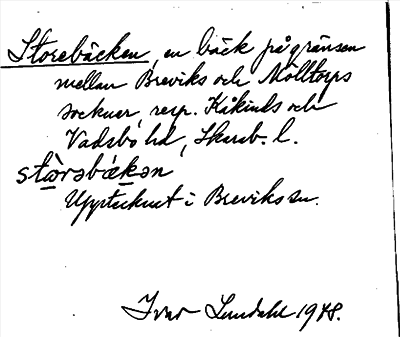 Storebäcken, en bäck på gränsen
mellan Breviks och Mölltorps
socknar, resp. Kåkinds och
Vadsbo hd, Skarab. l.
stòrəbǽkən
Upptecknat i Breviks sn.
Ivar Lundahl 1948.